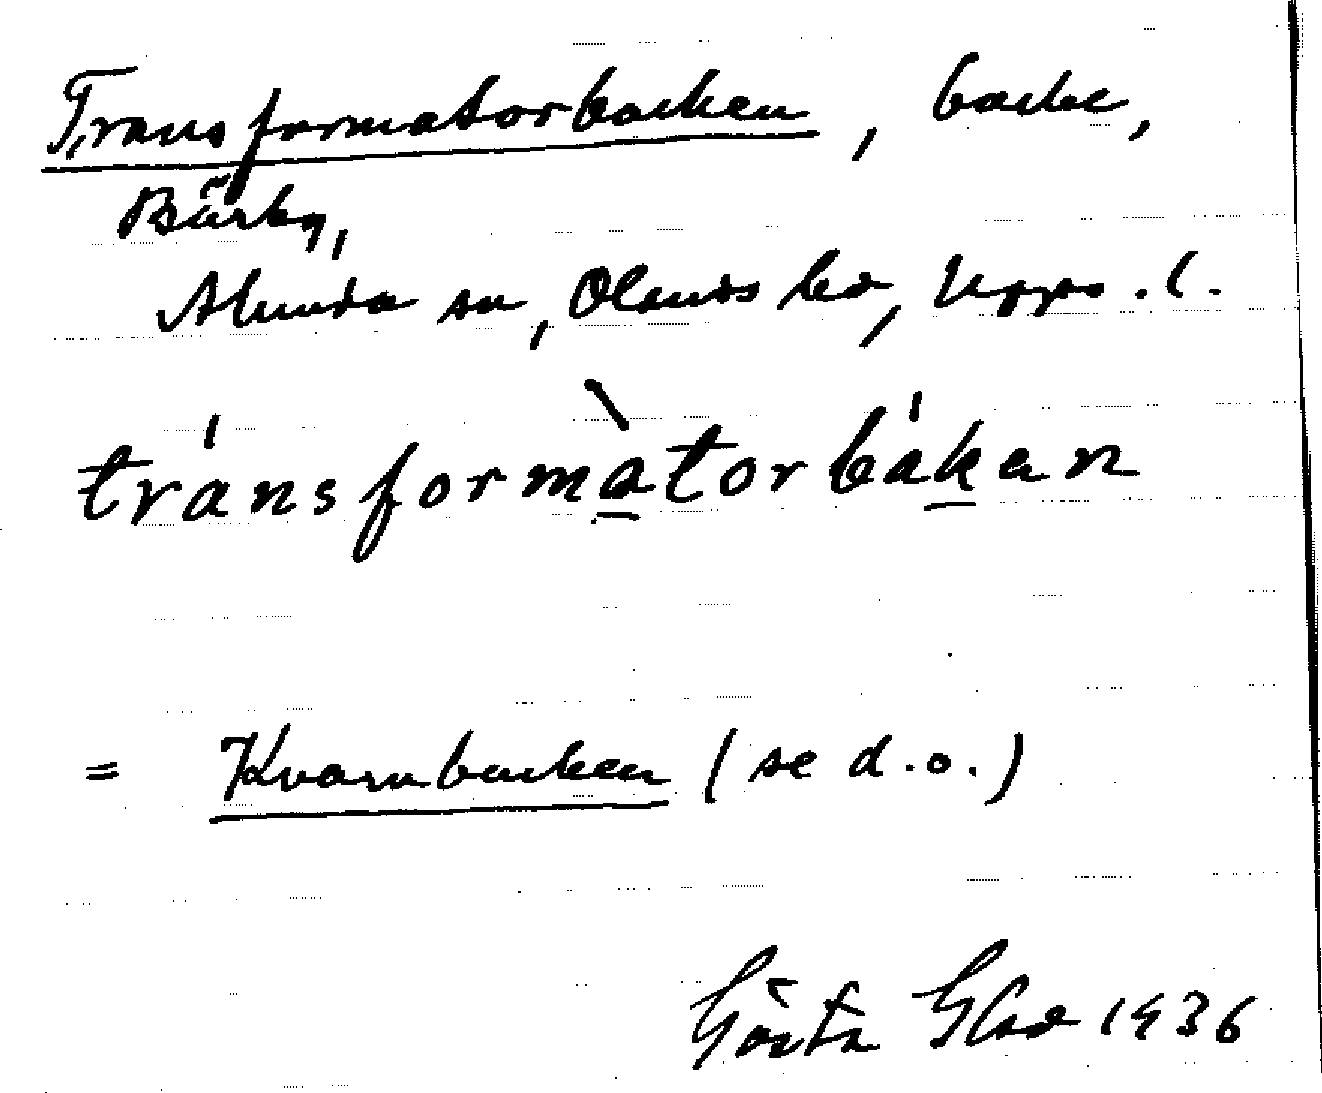 Transformatorbacken, backe,
Bärby,
Alunda sn, Olands hd, Upps. l.
tránsformàtorbákan
= Kvarnbacken (se d.o.)
Gösta Glad 1936